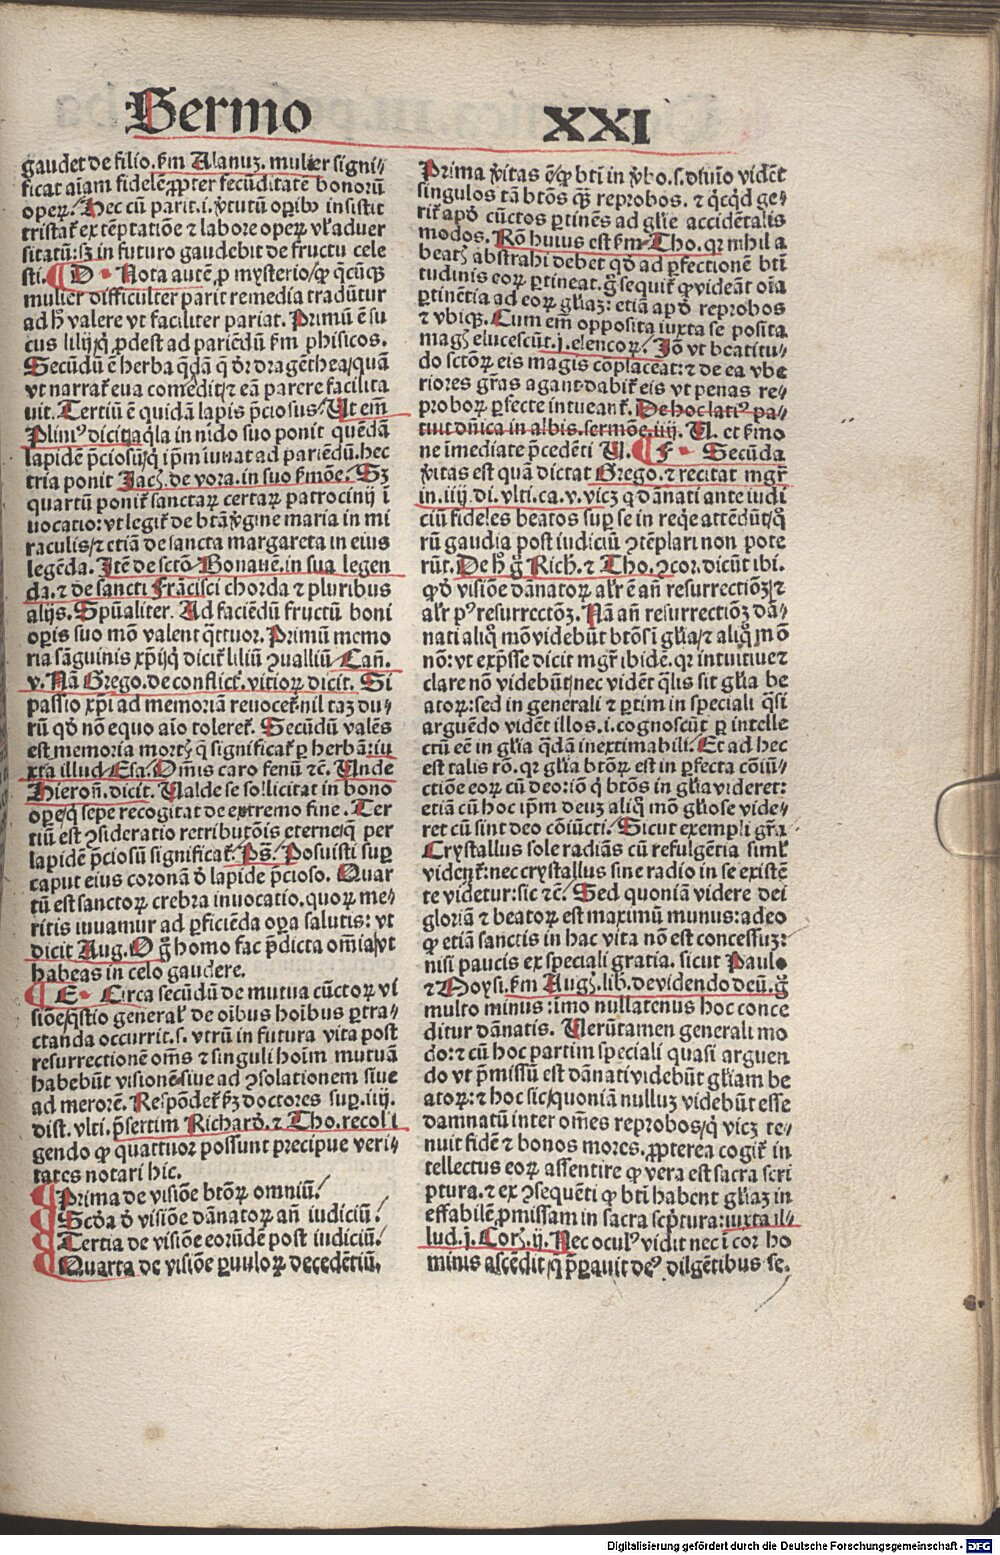 Sermo XXI
gaudet de filio. s̄m Alanuꝫ. mulier signi⸗
ficat aīam fidelē ꝓpter fecūditatē bonorū
operꝝ. Hec cū parit .i. v̄tutū oꝑibꝰ insistit
tristaꝉ ex tēptatiōe ⁊ labore operꝝ vꝉ aduer
sitatū: sꝫ in futuro gaudebit de fructu cele
sti. ¶ D • Nota autē ꝓ mysterio / ꝙ q̄cūqꝫ
mulier difficulter parit remedia tradūtur
ad h̄ valere vt faciliter pariat. Primū ē su
cus lilij / q̄ ꝓdest ad pariēdū s̄m phisicos.
Secūdū ē herba q̄dā q̄ d̄r dragēthea / quā
vt narraꝉ eua comedit / ⁊ eā parere facilita
uit. Tertiū ē quidā lapis p̄ciosus / Ut em̄
Pliniꝰ dicit / aq̄la in nido suo ponit quēdā
lapidē p̄ciosū / q̄ ip̄m iuuat ad pariēdū. hec
tria ponit Jacꝫ. de vora. in suo s̄mōe. Sꝫ
quartū poniꝉ sanctaꝝ certaꝝ patrocinij ī
uocatio: vt legiꝉ de btā v̄gine maria in mi
raculis / ⁊ etiā de sancta margareta in eius
legēda. Itē de sctō Bonauē. in sua legen
da. ⁊ de sancti Frācisci chorda ⁊ pluribus
alijs. Spūaliter. Ad faciēdū fructū boni
oꝑis suo mō valent q̄ttuor. Primū memo
ria sāguinis xp̄i / q̄ diciꝉ liliū ꝯualliū Cań.
v. Nā Grego. de conflicꝉ. vitioꝝ dicit. Si
passio xp̄i ad memoriā reuoceꝉ / nil taꝫ du⸗
rū qd̄ nō equo aīo tolereꝉ. Secūdū valēs
est memoria mortꝫ q̄ significaꝉ ꝑ herbā: iu
xta illud Esa. Om̄is caro fenū ⁊c̄. Unde
Hieroń. dicit. Ualde se sollicitat in bono
oꝑe / q̄ sepe recogitat de extremo fine. Ter
tiū est ꝯsideratio retributōis eterne / q̄ per
lapidē p̄ciosū significaꝉ. Ps̄. Posuisti suꝑ
caput eius coronā d̄ lapide p̄cioso. Quar
tū est sanctoꝝ crebra inuocatio. quoꝝ me⸗
ritis iuuamur ad ꝑficiēda oꝑa salutis: vt
dicit Aug. O g̊ homo fac p̄dicta om̄ia / vt
habeas in celo gaudere.
¶ E • Circa secūdū de mutua cūctoꝝ vi
siōe / q̄stio generaꝉ de oībus hoībus ꝑtra⸗
ctanda occurrit. s. vtrū in futura vita post
resurrectionē om̄s ⁊ singuli hoīm mutuā
habebūt visionē siue ad ꝯsolationem siue
ad merorē. Respōdeꝉ ẜꝫ doctores suꝑ .iiij.
dist. vlti. p̄sertim Richard̄. ⁊ Tho. recolli
gendo ꝙ quattuor possunt precipue veri⸗
tates notari hic.
¶ Prima de visiōe btōꝝ omniū.
¶ Scd̄a d̄ visiōe dānatoꝝ ań iudiciū.
¶ Tertia de visiōe eorūdē post iudiciū.
¶ Quarta de visiōe ꝑuuloꝝ decedētiū.
Prima v̄itas ē / ꝙ btī in v̄bo .s. diuīo vidēt
singulos tā btōs q̄ꝫ reprobos. ⁊ q̄cq̄d ge⸗
riꝉ apd̄ cūctos ꝑtinēs ad gl̄ie accidētalis
modos. Rō huius est s̄m Tho. qꝛ nihil a
beatꝫ abstrahi debet qd̄ ad ꝑfectionē btī
tudinis eoꝝ ꝑtineat. g̊ sequiꝉ ꝙ videāt oīa
ꝑtinētia ad eoꝝ gl̄iaꝫ: etiā apd̄ reprobos
⁊ vbiqꝫ. Cum em̄ opposita iuxta se posita
magꝫ elucescūt .j. elencoꝝ. Jō vt beatitu⸗
do sctōꝝ eis magis cōplaceat: ⁊ de ea vbe
riores gr̄as agant / dabiꝉ eis vt penas re⸗
proboꝝ ꝑfecte intueanꝉ. De hoc latiꝰ pa⸗
tuit dn̄ica in albis. sermōe .iij. U. et s̄mo
ne īmediate p̄cedēti U. ¶ F • Secūda
v̄itas est quā dictat Grego. ⁊ recitat mgr̄
in .iiij. di. vlti. ca. v. vicꝫ q̄ dānati ante iudi
ciū fideles beatos suꝑ se in req̄e attēdūt / q̄
rū gaudia post iudiciū ꝯtēplari non pote
rūt. De h̄ g̊ Rich. ⁊ Tho. ꝯcor. dicūt ibi.
ꝙ d̄ visiōe dānatoꝝ alr̄ ē ań resurrectiōꝫ / ⁊
alr̄ pꝰ resurrectōꝫ. Nā ań resurrectiōꝫ dā⸗
nati aliq̄ mō videbūt btōs ī gl̄ia / ⁊ aliq̄ mō
nō: vt exp̄sse dicit mgr̄ ibidē. qꝛ intuitiue ⁊
clare nō videbūt / nec vidēt q̄lis sit gl̄ia be
atoꝝ: sed in generali ⁊ ꝑtim in speciali q̄si
arguēdo vidēt illos .i. cognoscūt ꝑ intelle
ctū eē in gl̄ia q̄dā inextimabili. Et ad hec
est talis rō. qꝛ gl̄ia btōꝝ est in ꝑfecta cōiū⸗
ctiōe eoꝝ cū deo: iō q̄ btōs in gl̄ia videret:
etiā cū hoc ip̄m deuꝫ aliq̄ mō gl̄iose vide⸗
ret cū sint deo cōiūcti. Sicut exempli gr̄a
Crystallus sole radiās cū refulgētia simꝉ
videnꝉ: nec crystallus sine radio in se existē
te videtur: sic ⁊c̄. Sed quoniā videre dei
gloriā ⁊ beatoꝝ est maximū munus: adeo
ꝙ etiā sanctis in hac vita nō est concessuꝫ:
nisi paucis ex speciali gratia. sicut Paulo
⁊ Moysi. s̄m Augꝫ. lib. de videndo deū. g̊
multo minus: imo nullatenus hoc conce
ditur dānatis. Uerūtamen generali mo
do: ⁊ cū hoc partim speciali quasi arguen
do vt p̄missū est dānati videbūt gl̄iam be
atoꝝ: ⁊ hoc sic / quoniā nulluꝫ videbūt esse
damnatū inter om̄es reprobos / q̄ vicꝫ te⸗
nuit fidē ⁊ bonos mores. ꝓpterea cogiꝉ in
tellectus eoꝝ assentire ꝙ vera est sacra scri
ptura. ⁊ ex ꝯsequēti ꝙ btī habent gl̄iaꝫ in
effabilē ꝓmissam in sacra scp̄tura: iuxta il⸗
lud .j. Corꝫ. ij. Nec oculꝰ vidit nec ī cor ho
minis ascēdit / q̄ p̄ꝑauit deꝰ diligētibus se.
Digitalisierung gefördert durch die Deutsche Forschungsgemeinschaft - DFG